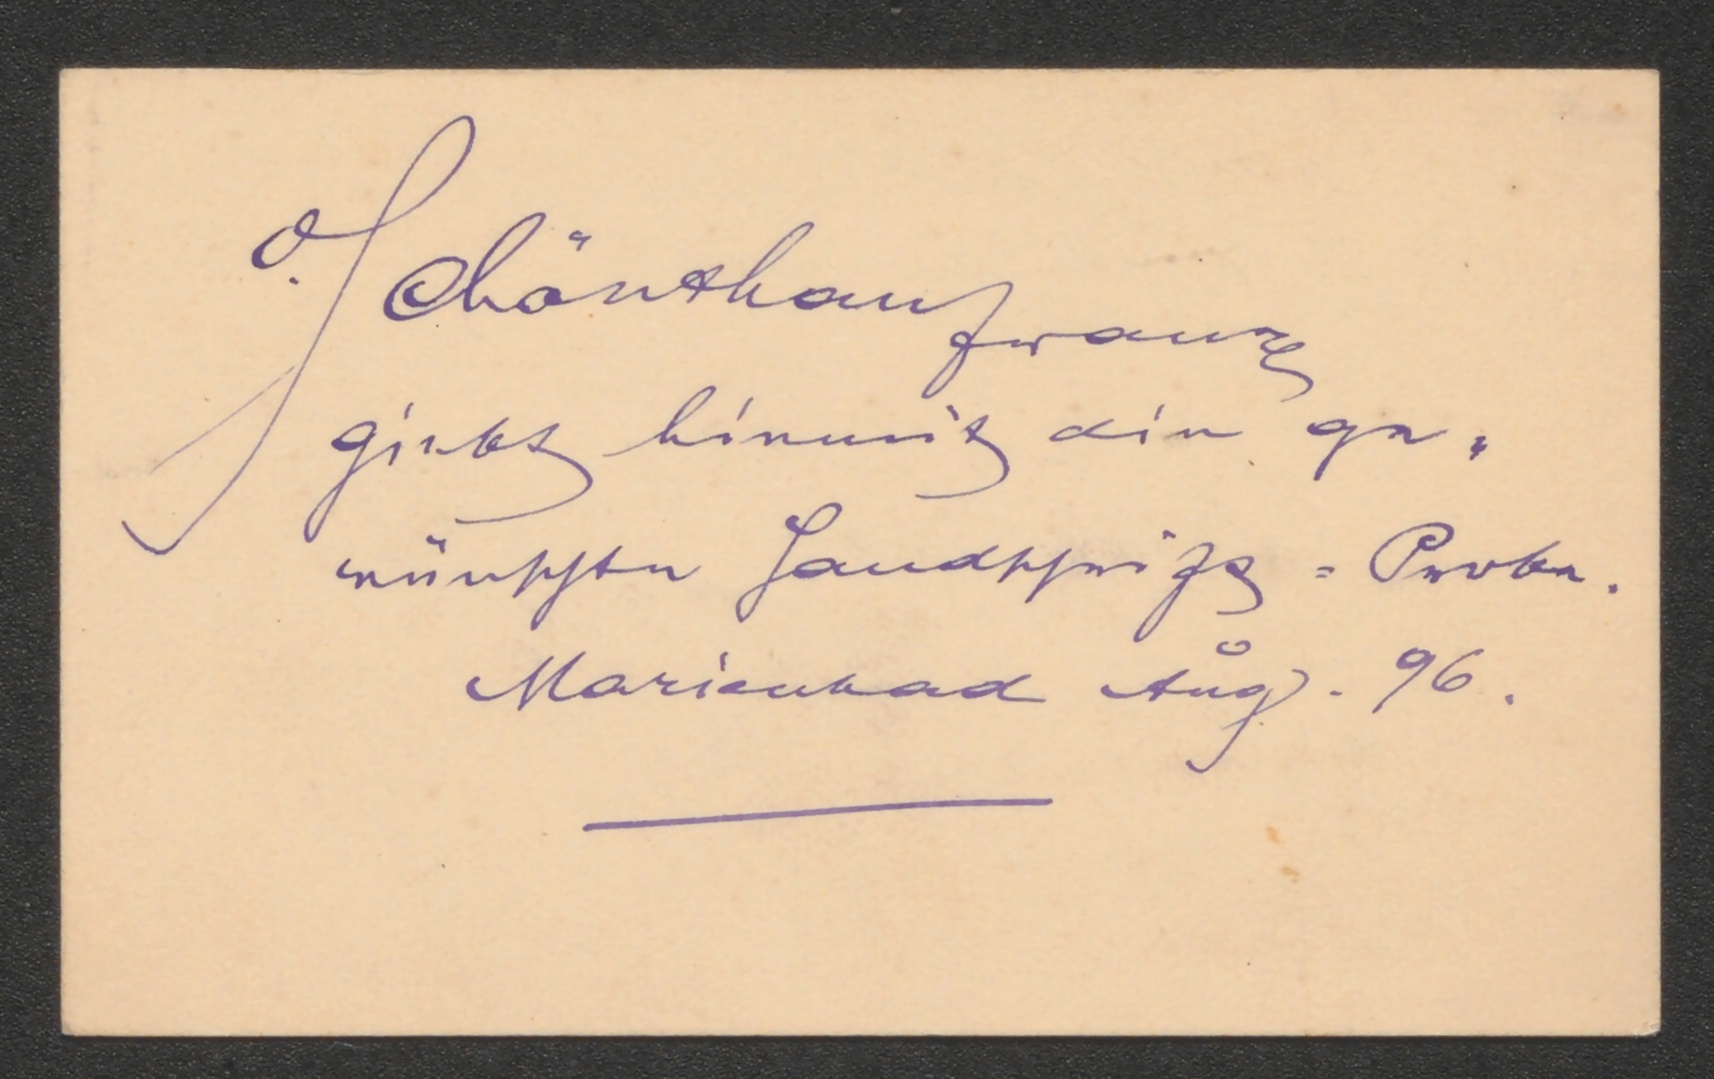 v. Schönthan Franz
giebt hiermit die ge-
wünschte Handschrift-Probe.
Marienbad Aug. 96.